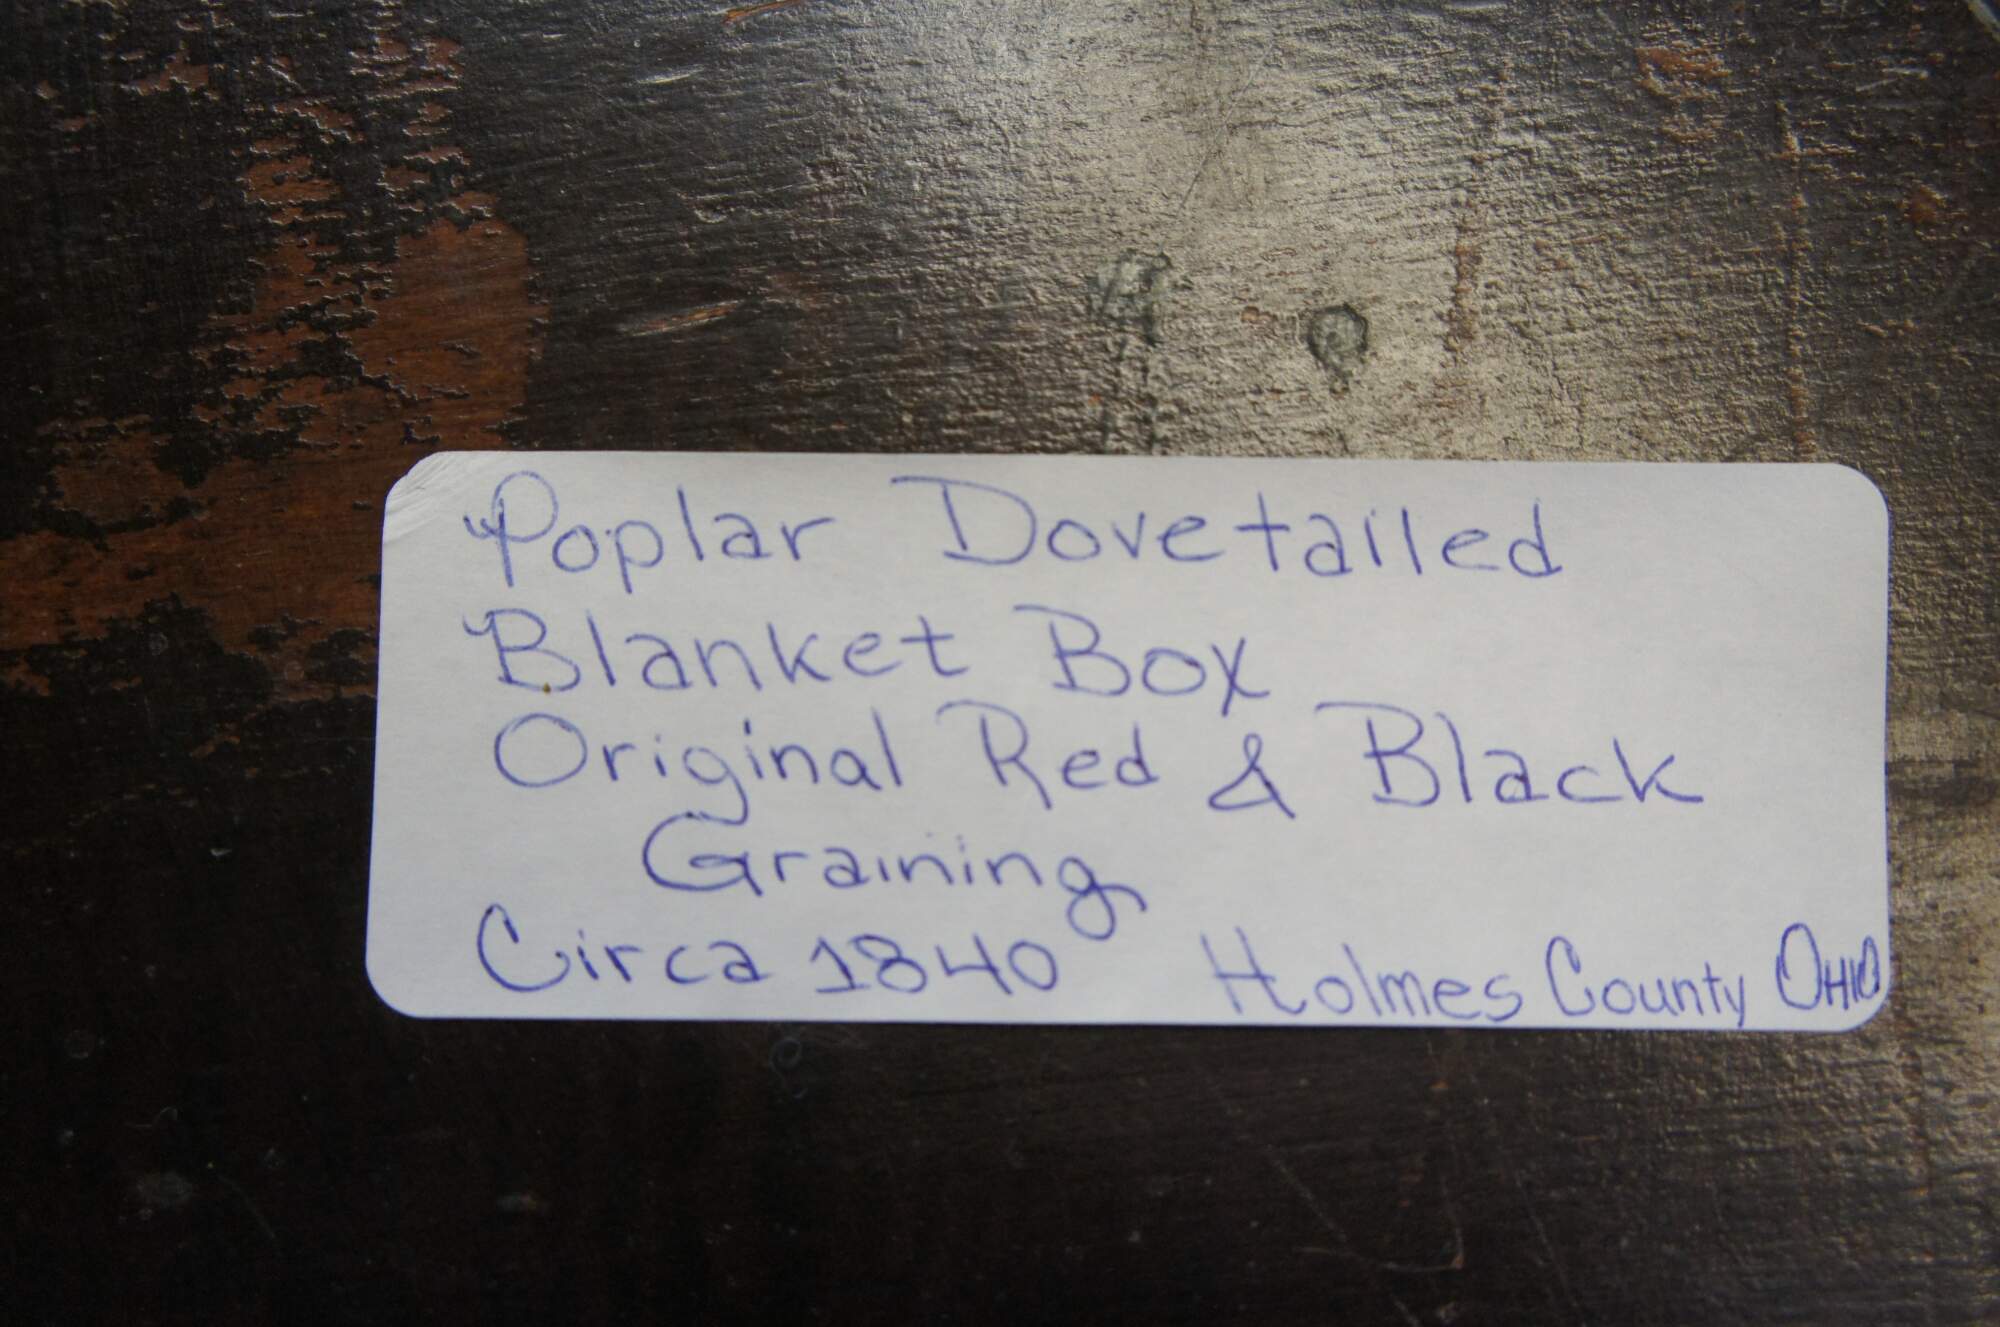 Poplar Dovetailed
Blanket Box
Original Red & Black
Graining
Circa 1840 Holmes County OHIO